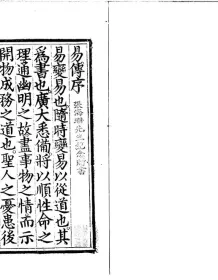 易傳序
易變易也隨時變易以從道也其
為書也廣大悉備將以順性命之
理通幽明之故盡事物之情而示
開物成務之道也聖人之憂患後